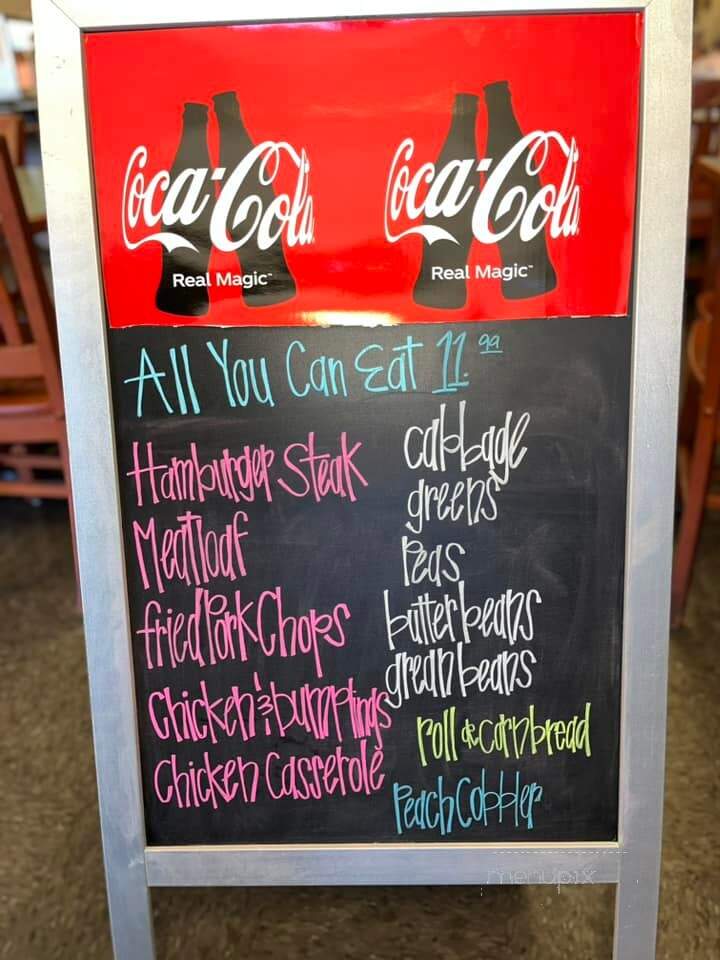 Coca-Cola
Real Magic™
Coca-Cola
Real Magic™
All You Can Eat 11.99
Hamburger Steak
Meatloaf
fried Pork Chops
Chicken & Dumplings
Chicken Casserole
cabbage
greens
Peas
butterbeans
green beans
roll or cornbread
Peach Cobbler
menupix